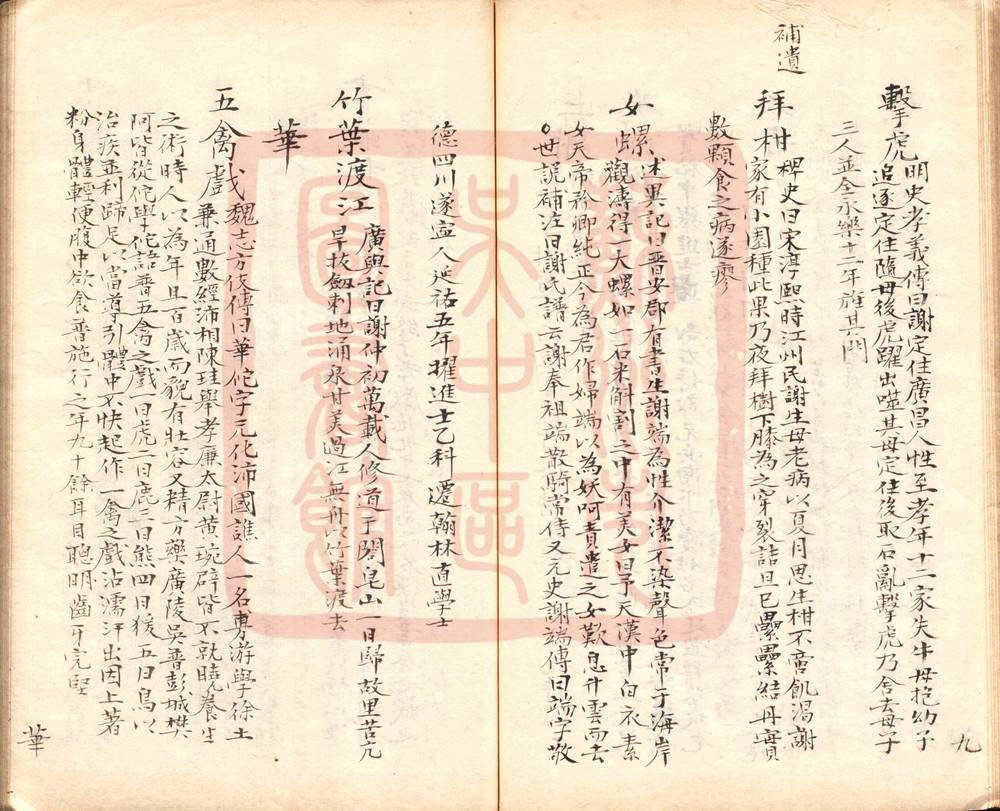 補遺
擊虎 明史孝義傳曰謝定住廣昌人性至孝年十二家失牛母抱幼子
追逐定住隨母後虎躍出噬其母定住後取石亂擊虎乃舍去母子
三人並全永樂十二年旌其門
拜柑 稗史曰宋淳熙時江州民謝生母老病以夏月思生柑不啻飢渴謝
家有小園種此果乃夜拜樹下膝為之穿裂詰旦已纍纍結丹實
數顆食之病遂瘳
女螺 述異記曰晉安郡有書生謝端為性介潔不染聲色常于海岸
觀濤得一大螺如一石米斛割之中有美女曰予天漢中白衣素
女天帝矜卿純正令為君作婦端以為妖呵責遣之女歎息升雲而去
○世說補注曰謝氏譜云謝奉祖端散騎常侍又元史謝端傳曰端字敬
九
德四川遂寧人延祐五年擢進士乙科遷翰林直學士
竹葉渡江 廣輿記曰謝仲初萬載人修道于閤皂山一日歸故里苦亢
旱拔劍刺地涌泉甘美過江無舟以竹葉渡去
華
五禽戲 魏志方伎傳曰華佗字元化沛國譙人一名旉游學徐土
兼通數經沛相陳珪舉孝廉太尉黃琬辟皆不就曉養生
之術時人以為年且百歲而貌有壯容又精方藥廣陵吳普彭城樊
阿皆從佗學佗語普五禽之戲一曰虎二曰鹿三曰熊四曰猨五曰鳥以
治疾並利蹄足以當導引體中不快起作一禽之戲沾濡汗出因上著
粉身體輕便腹中欲食普施行之年九十餘耳目聰明齒牙完堅
華